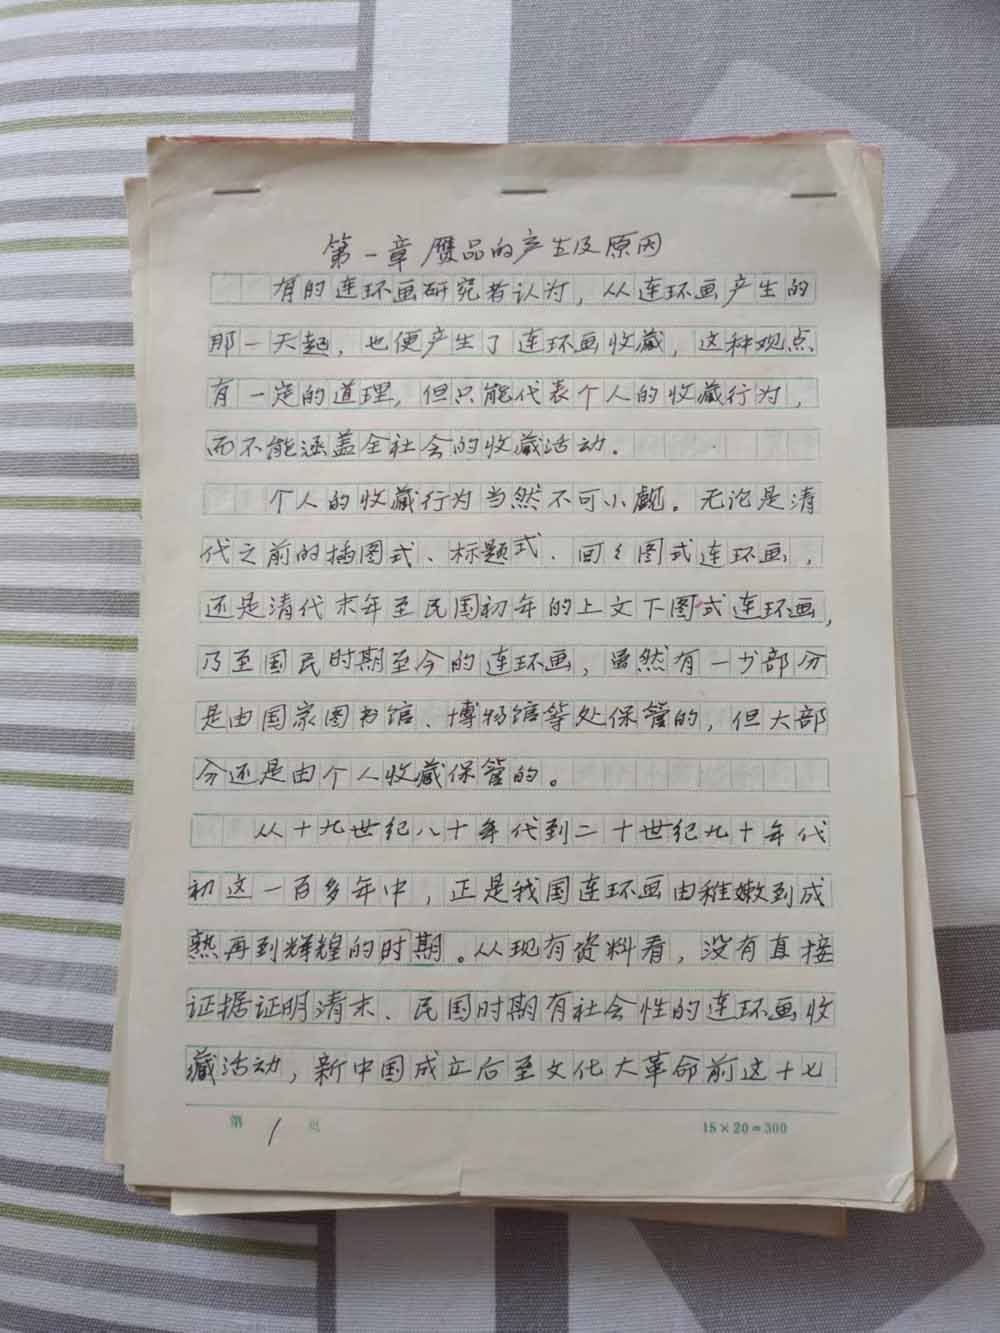 第一章 赝品的产生及原因
有的连环画研究者认为，从连环画产生的
那一天起，也便产生了连环画收藏，这种观点
有一定的道理，但只能代表个人的收藏行为，
而不能涵盖全社会的收藏活动．
个人的收藏行为当然不可小觑。无论是清
代之前的插图式、标题式、回回图式连环画，
还是清代末年至民国初年的上文下图式连环画，
乃至国民时期至今的连环画，虽然有一少部分
是由国家图书馆、博物馆等处保管的，但大部
分还是由个人收藏保管的。
从十九世纪八十年代到二十世纪九十年代
初这一百多年中，正是我国连环画由稚嫩到成
熟再到辉煌的时期。从现有资料看，没有直接
证据证明清末、民国时期有社会性的连环画收
藏活动，新中国成立后至文化大革命前这十七
第 1 页 15×20=300